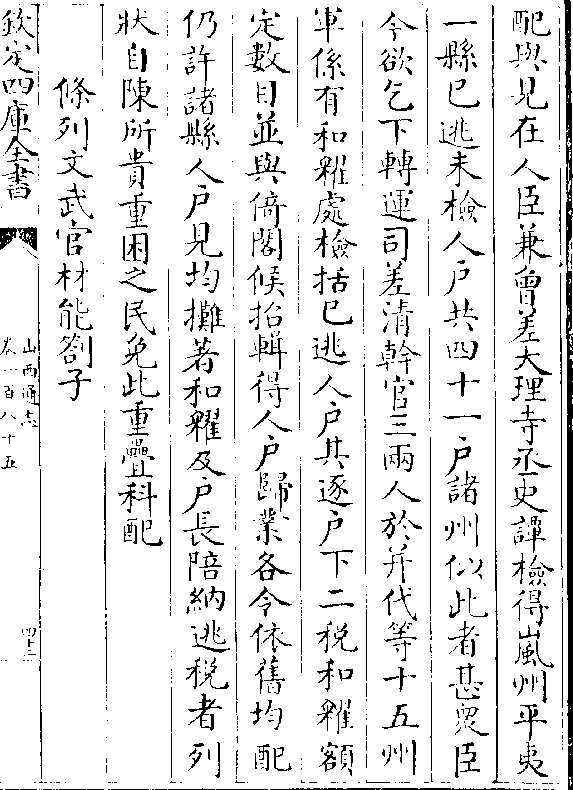 配與見在人臣兼曾差大理寺丞吏譚檢得嵐州平夷
一縣已逃未檢人户共四十一户諸州似此者甚衆臣
今欲乞下轉運司差清幹官三兩人於并代等十五州
軍係有和糴處檢括已逃人户其逐户下二税和糴額
定數目並與倚閣候招輯得人户歸業各令依舊均配
仍許諸縣人户見均攤著和糴及户長陪納逃税者列
狀自陳所貴重困之民免此重疊科配
條列文武官材能劄子
欽定四庫全書
山西通志
卷一百八十五
四十二